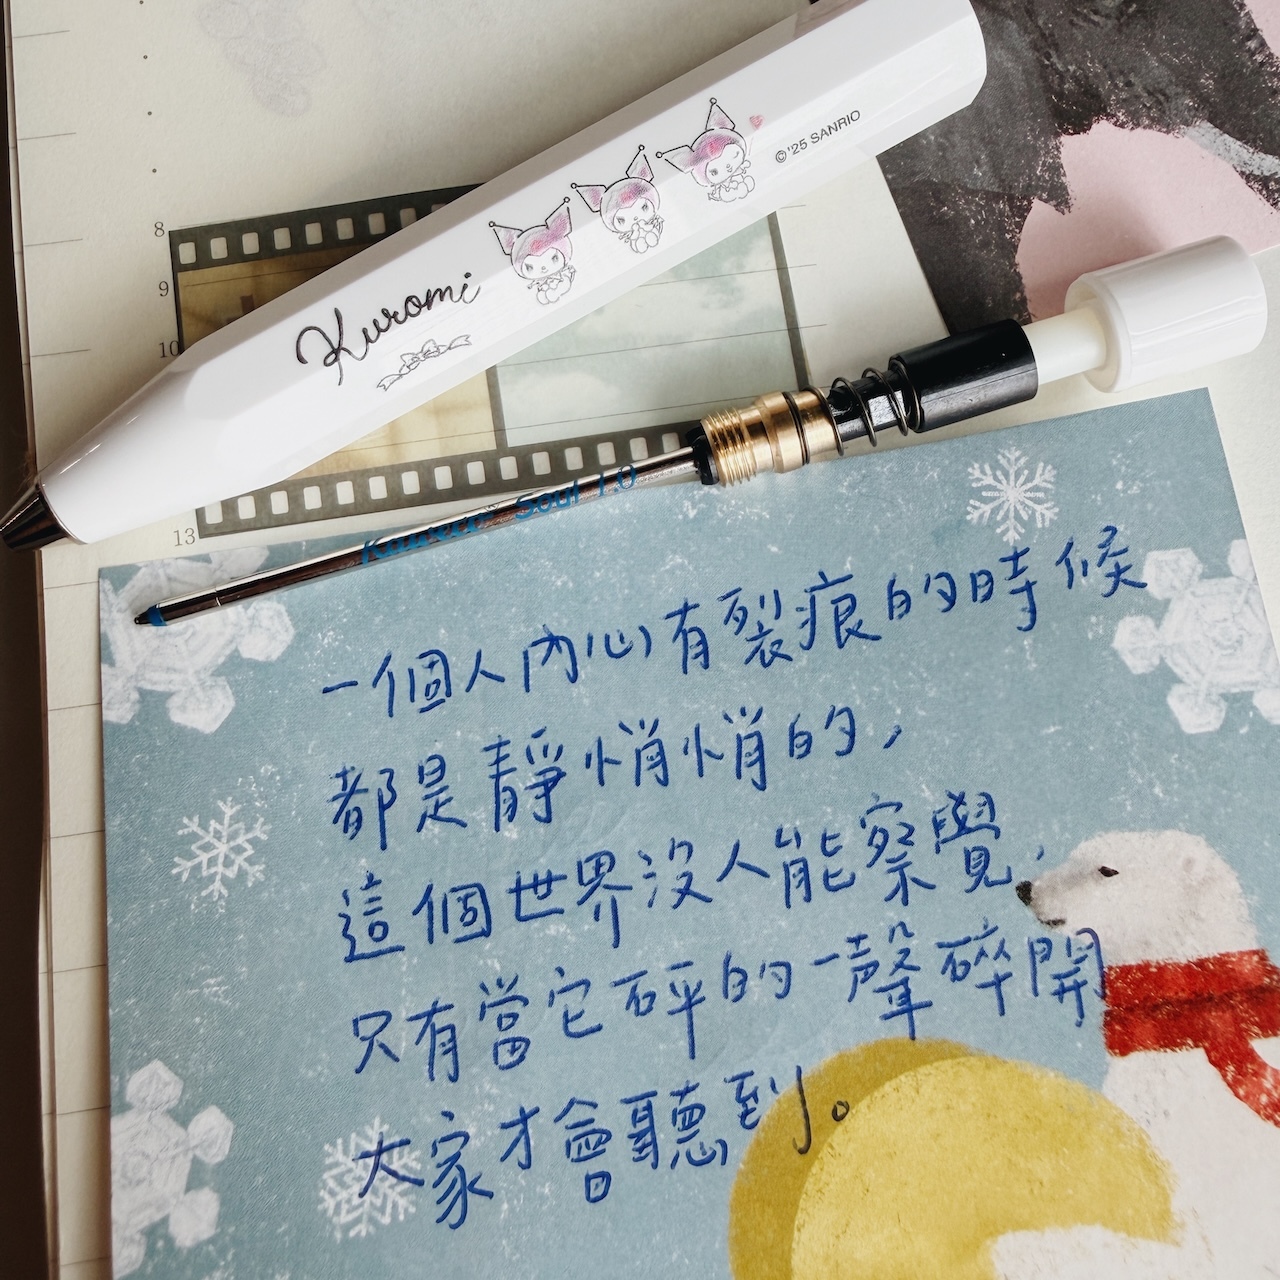 © '25 SANRIO
Kuromi
8
9
10
13
Kaweco Soul 1.0
一個人內心有裂痕的時候
都是靜悄悄的，
這個世界沒人能察覺，
只有當它砰的一聲碎開
大家才會聽到。